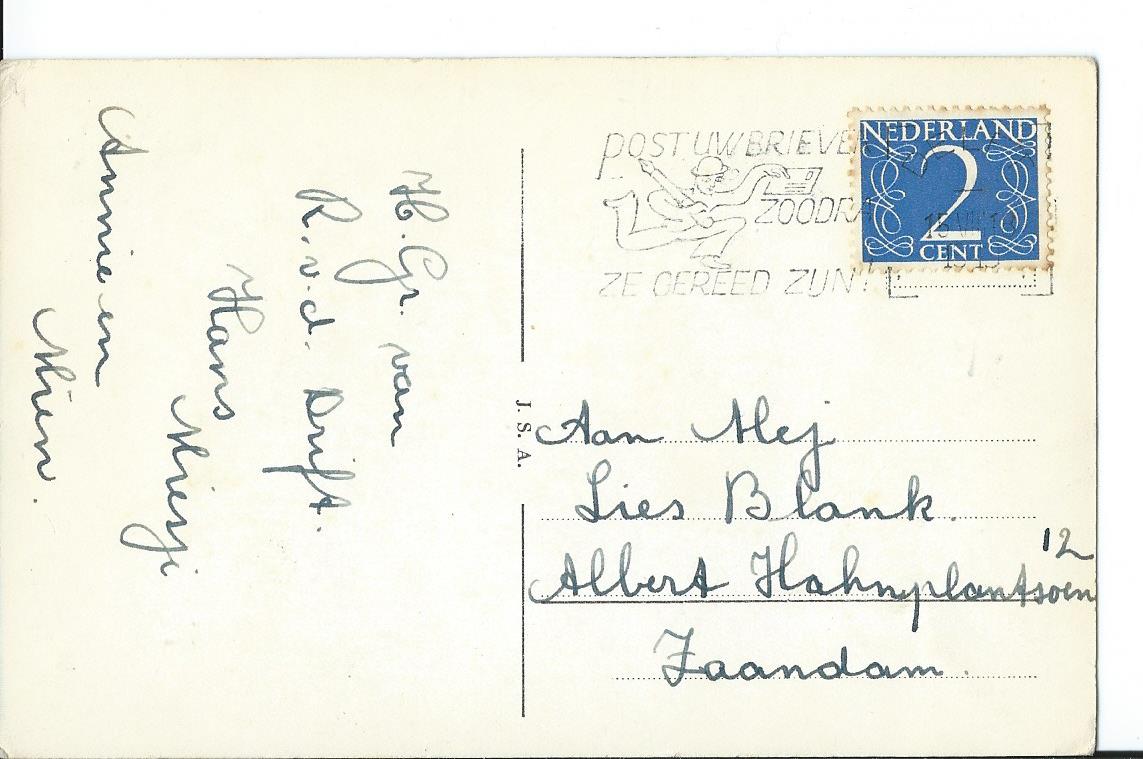 H. Gr. van
R. v. d. Drift.
Hans Miesje
Annie en
Mien.
J. S. A.
POST UW BRIEVEN
ZOODRA
ZE GEREED ZIJN!
NEDERLAND
2
CENT
Aan Mej
Lies Blank.
Albert Hahnplantsoen 12
Zaandam.